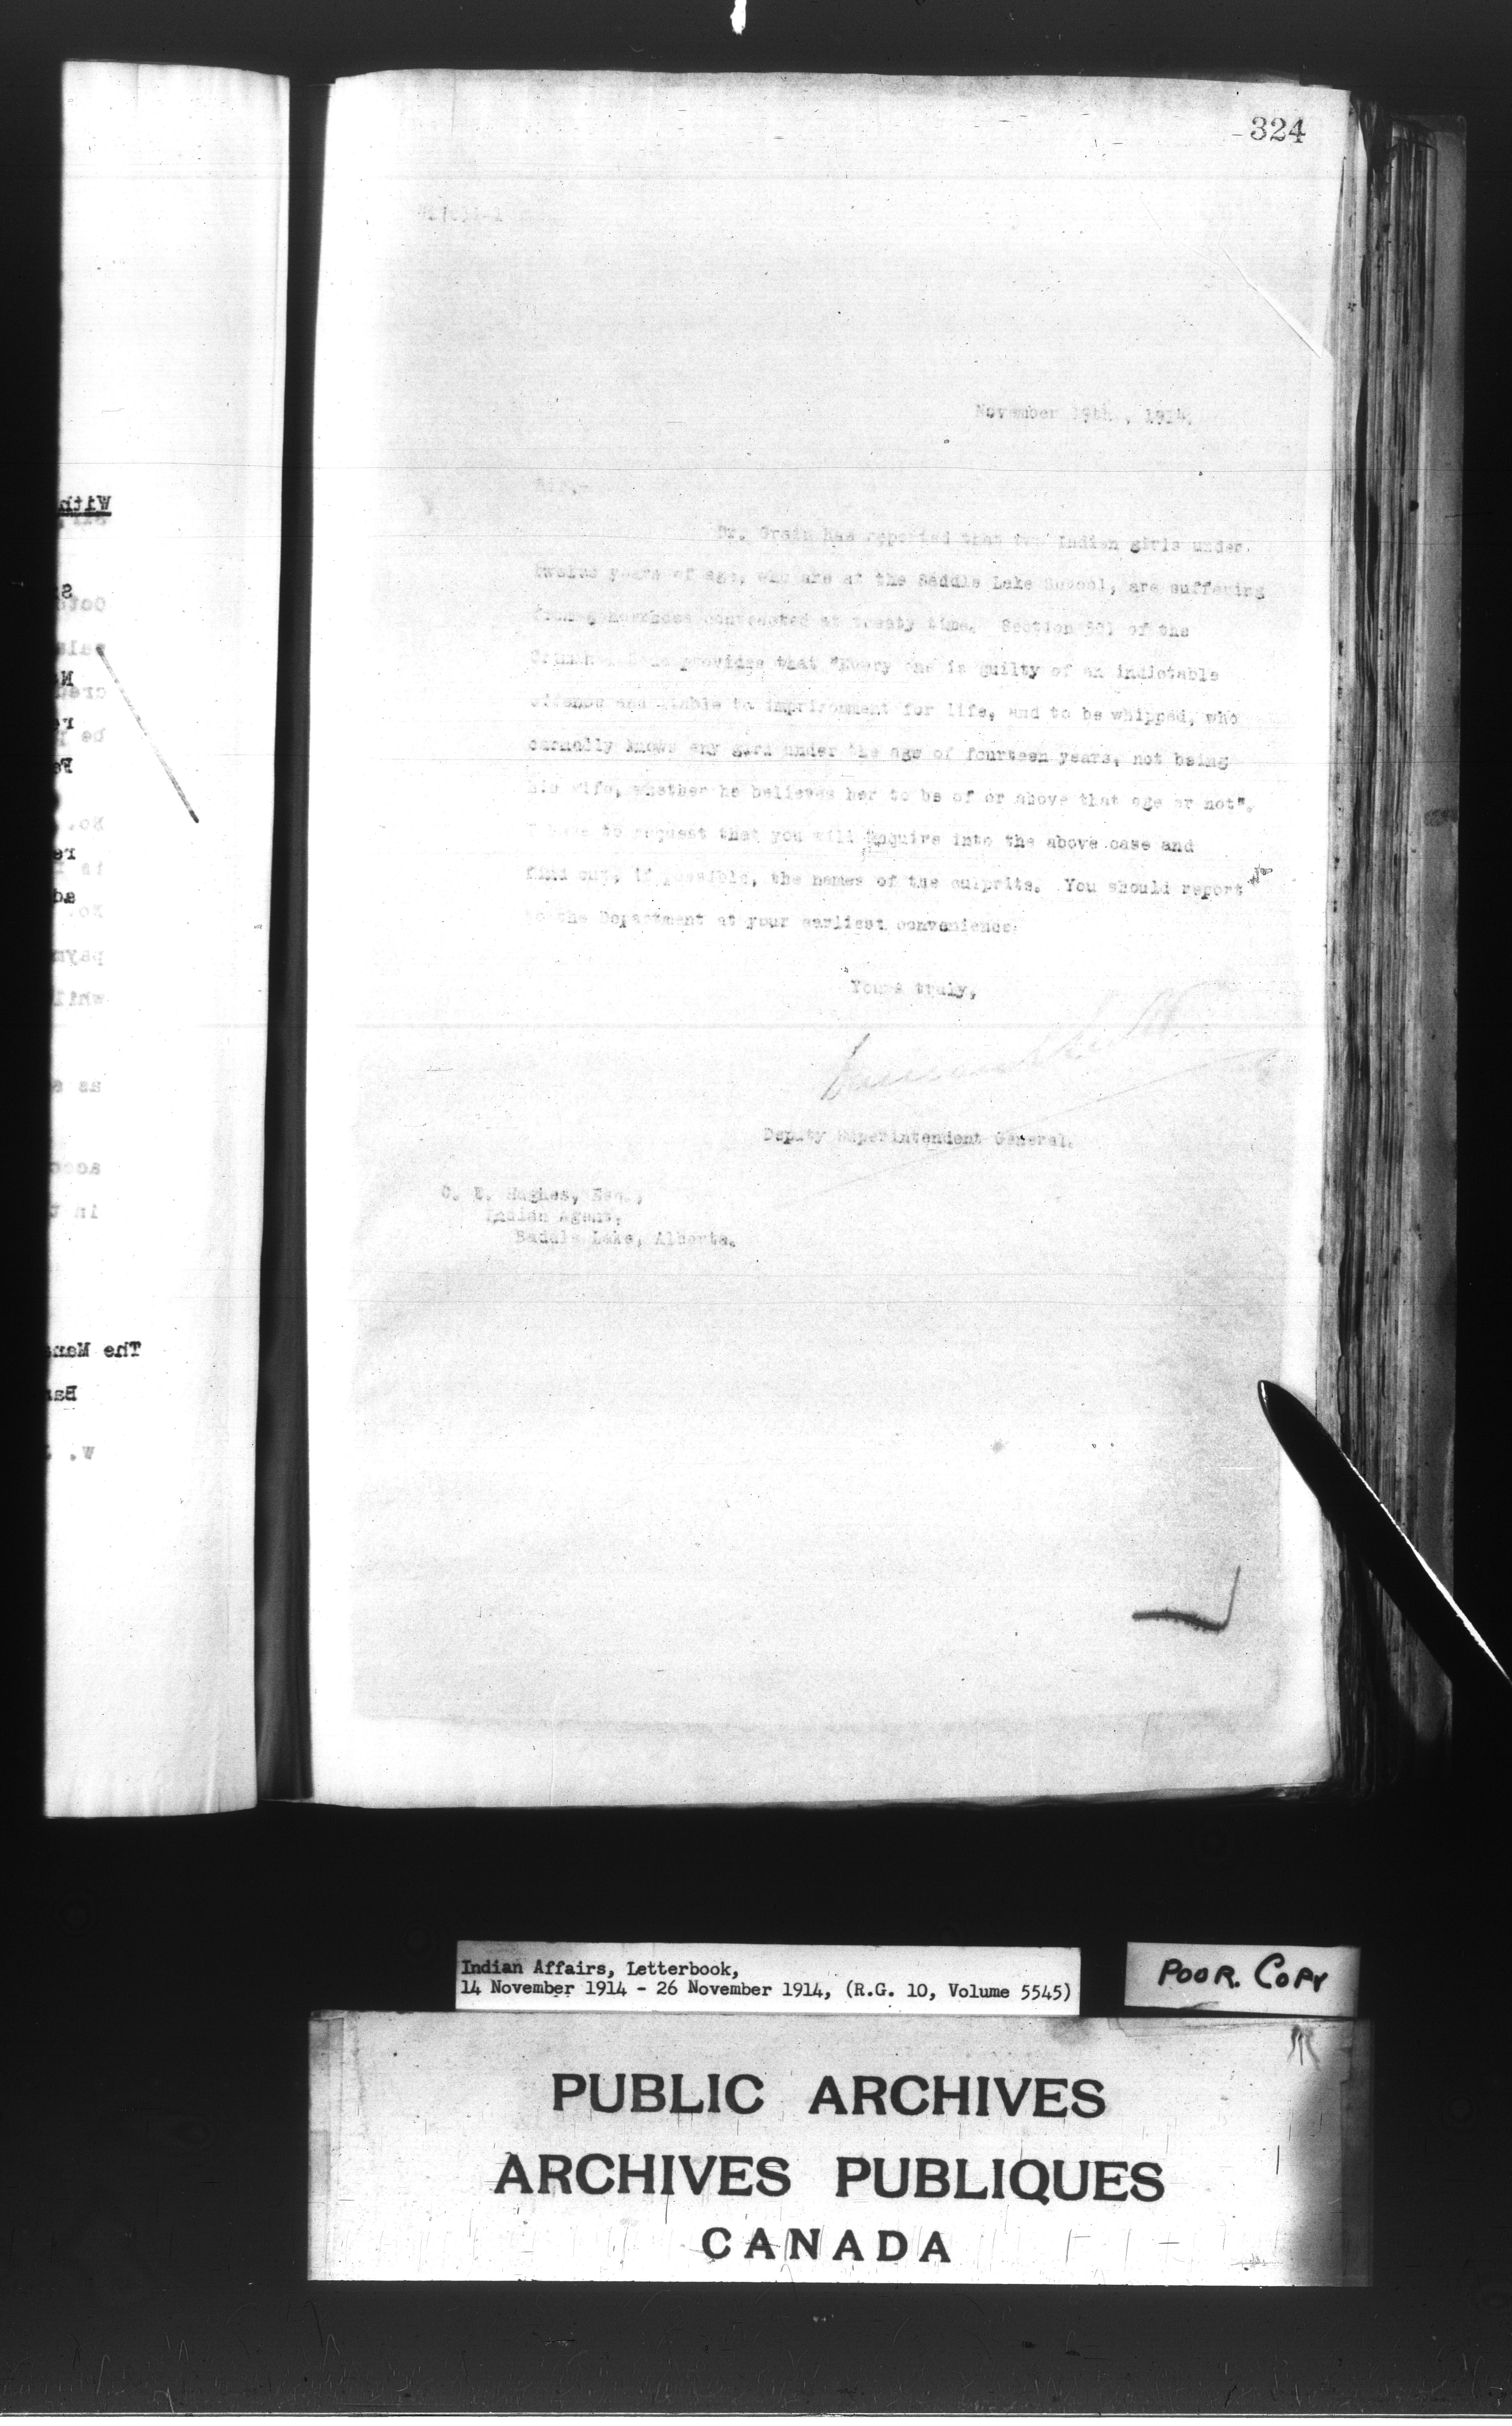 324
November 19th, 1914.
Sir,-
Dr. Grain has reported that two Indian girls under
twelve years of age, who are at the Saddle Lake School, are suffering
from gonorrhoea contracted at treaty time. Section 301 of the
Criminal Code provides that "Every one is guilty of an indictable
offence and liable to imprisonment for life, and to be whipped, who
carnally knows any girl under the age of fourteen years, not being
his wife, whether he believes her to be of or above that age or not".
I have to request that you will enquire into the above case and
find out, if possible, the names of the culprits. You should report
to the Department at your earliest convenience.
Yours truly,
Deputy Superintendent General.
Hughes, Esq.,
Indian Agent,
Saddle Lake, Alberta.
The Mana
Indian Affairs, Letterbook,
14 November 1914 - 26 November 1914, (R.G. 10, Volume 5545)
POOR. COPY
PUBLIC ARCHIVES
ARCHIVES PUBLIQUES
CANADA